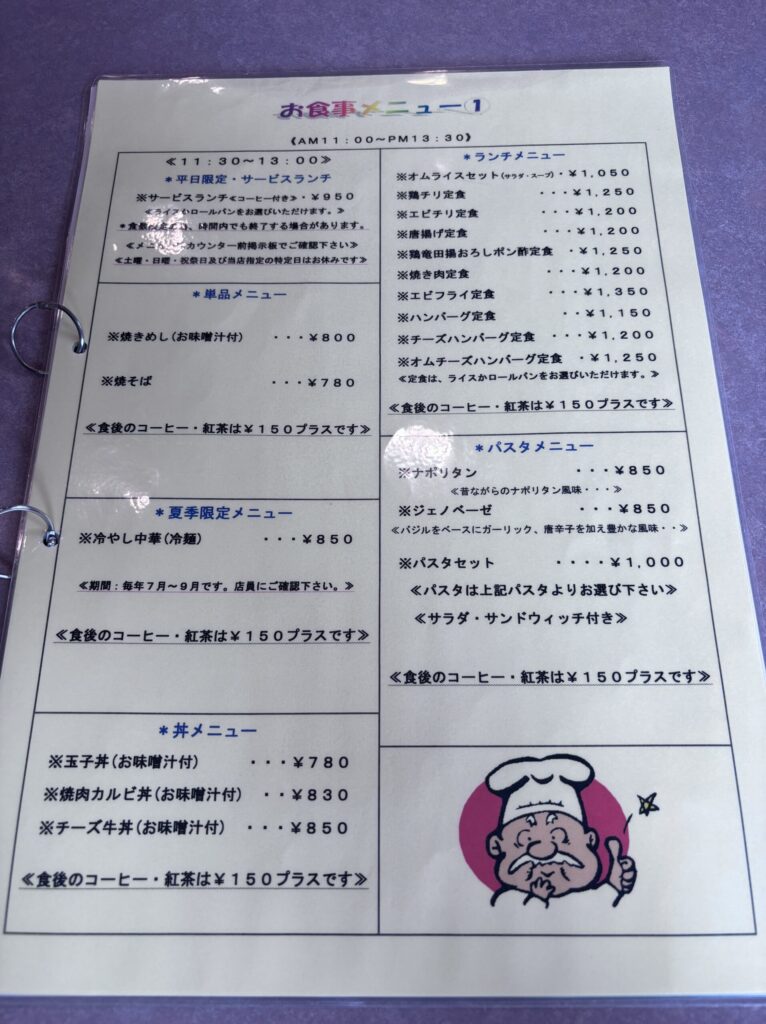 お食事メニュー①
《AM11:00～PM13:30》
≪11:30～13:00≫
＊平日限定・サービスランチ
※サービスランチ≪コーヒー付き≫・￥950
≪ライスかロールパンをお選びいただけます。≫
時間内でも終了する場合があります。
カウンター前掲示板でご確認下さい≫
≪土曜・日曜・祝祭日及び当店指定の特定日はお休みです≫
＊単品メニュー
※焼きめし(お味噌汁付) ・・・￥800
※焼そば ・・・￥780
≪食後のコーヒー・紅茶は￥150プラスです≫
＊夏季限定メニュー
※冷やし中華(冷麺) ・・・￥850
≪期間：毎年7月～9月です。店員にご確認下さい。≫
≪食後のコーヒー・紅茶は￥150プラスです≫
＊丼メニュー
※玉子丼(お味噌汁付) ・・・￥780
※焼肉カルビ丼(お味噌汁付) ・・￥830
※チーズ牛丼(お味噌汁付) ・・・￥850
≪食後のコーヒー・紅茶は￥150プラスです≫
＊ランチメニュー
※オムライスセット(サラダ・スープ)・￥1,050
※鶏チリ定食 ・・・￥1,250
※エビチリ定食 ・・・￥1,200
※唐揚げ定食 ・・・￥1,200
※鶏竜田揚おろしポン酢定食 ・￥1,250
※焼き肉定食 ・・・￥1,200
※エビフライ定食 ・・・￥1,350
※ハンバーグ定食 ・・・￥1,150
※チーズハンバーグ定食 ・・・￥1,200
※オムチーズハンバーグ定食 ・￥1,250
≪定食は、ライスかロールパンをお選びいただけます。≫
≪食後のコーヒー・紅茶は￥150プラスです≫
＊パスタメニュー
※ナポリタン ・・・￥850
≪昔ながらのナポリタン風味・・・≫
※ジェノベーゼ ・・・￥850
≪バジルをベースにガーリック、唐辛子を加え豊かな風味・・≫
※パスタセット ・・・・￥1,000
≪パスタは上記パスタよりお選び下さい≫
≪サラダ・サンドウィッチ付き≫
≪食後のコーヒー・紅茶は￥150プラスです≫